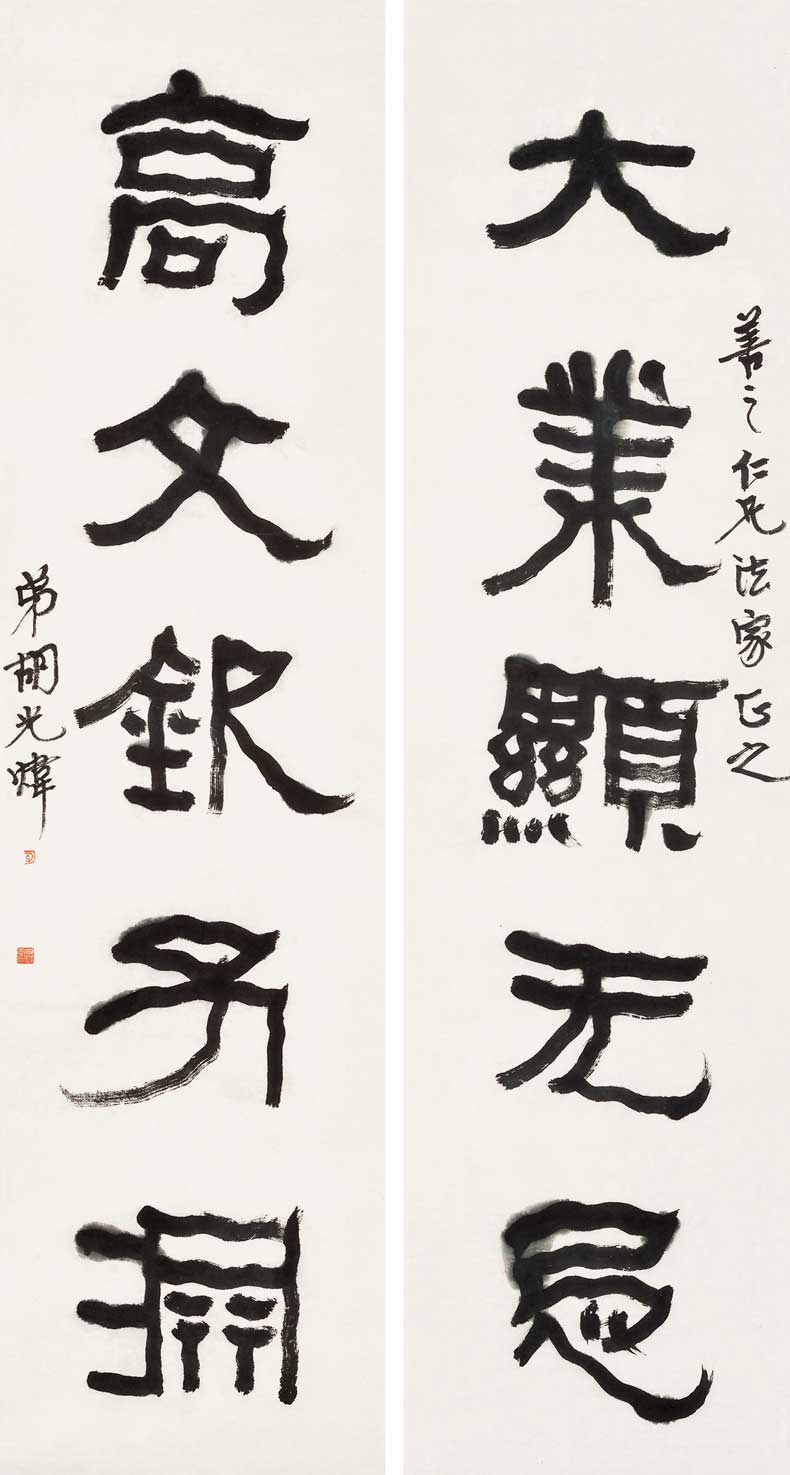 善之仁兄法家正之
大業顯无忌
高文子
弟胡光煒